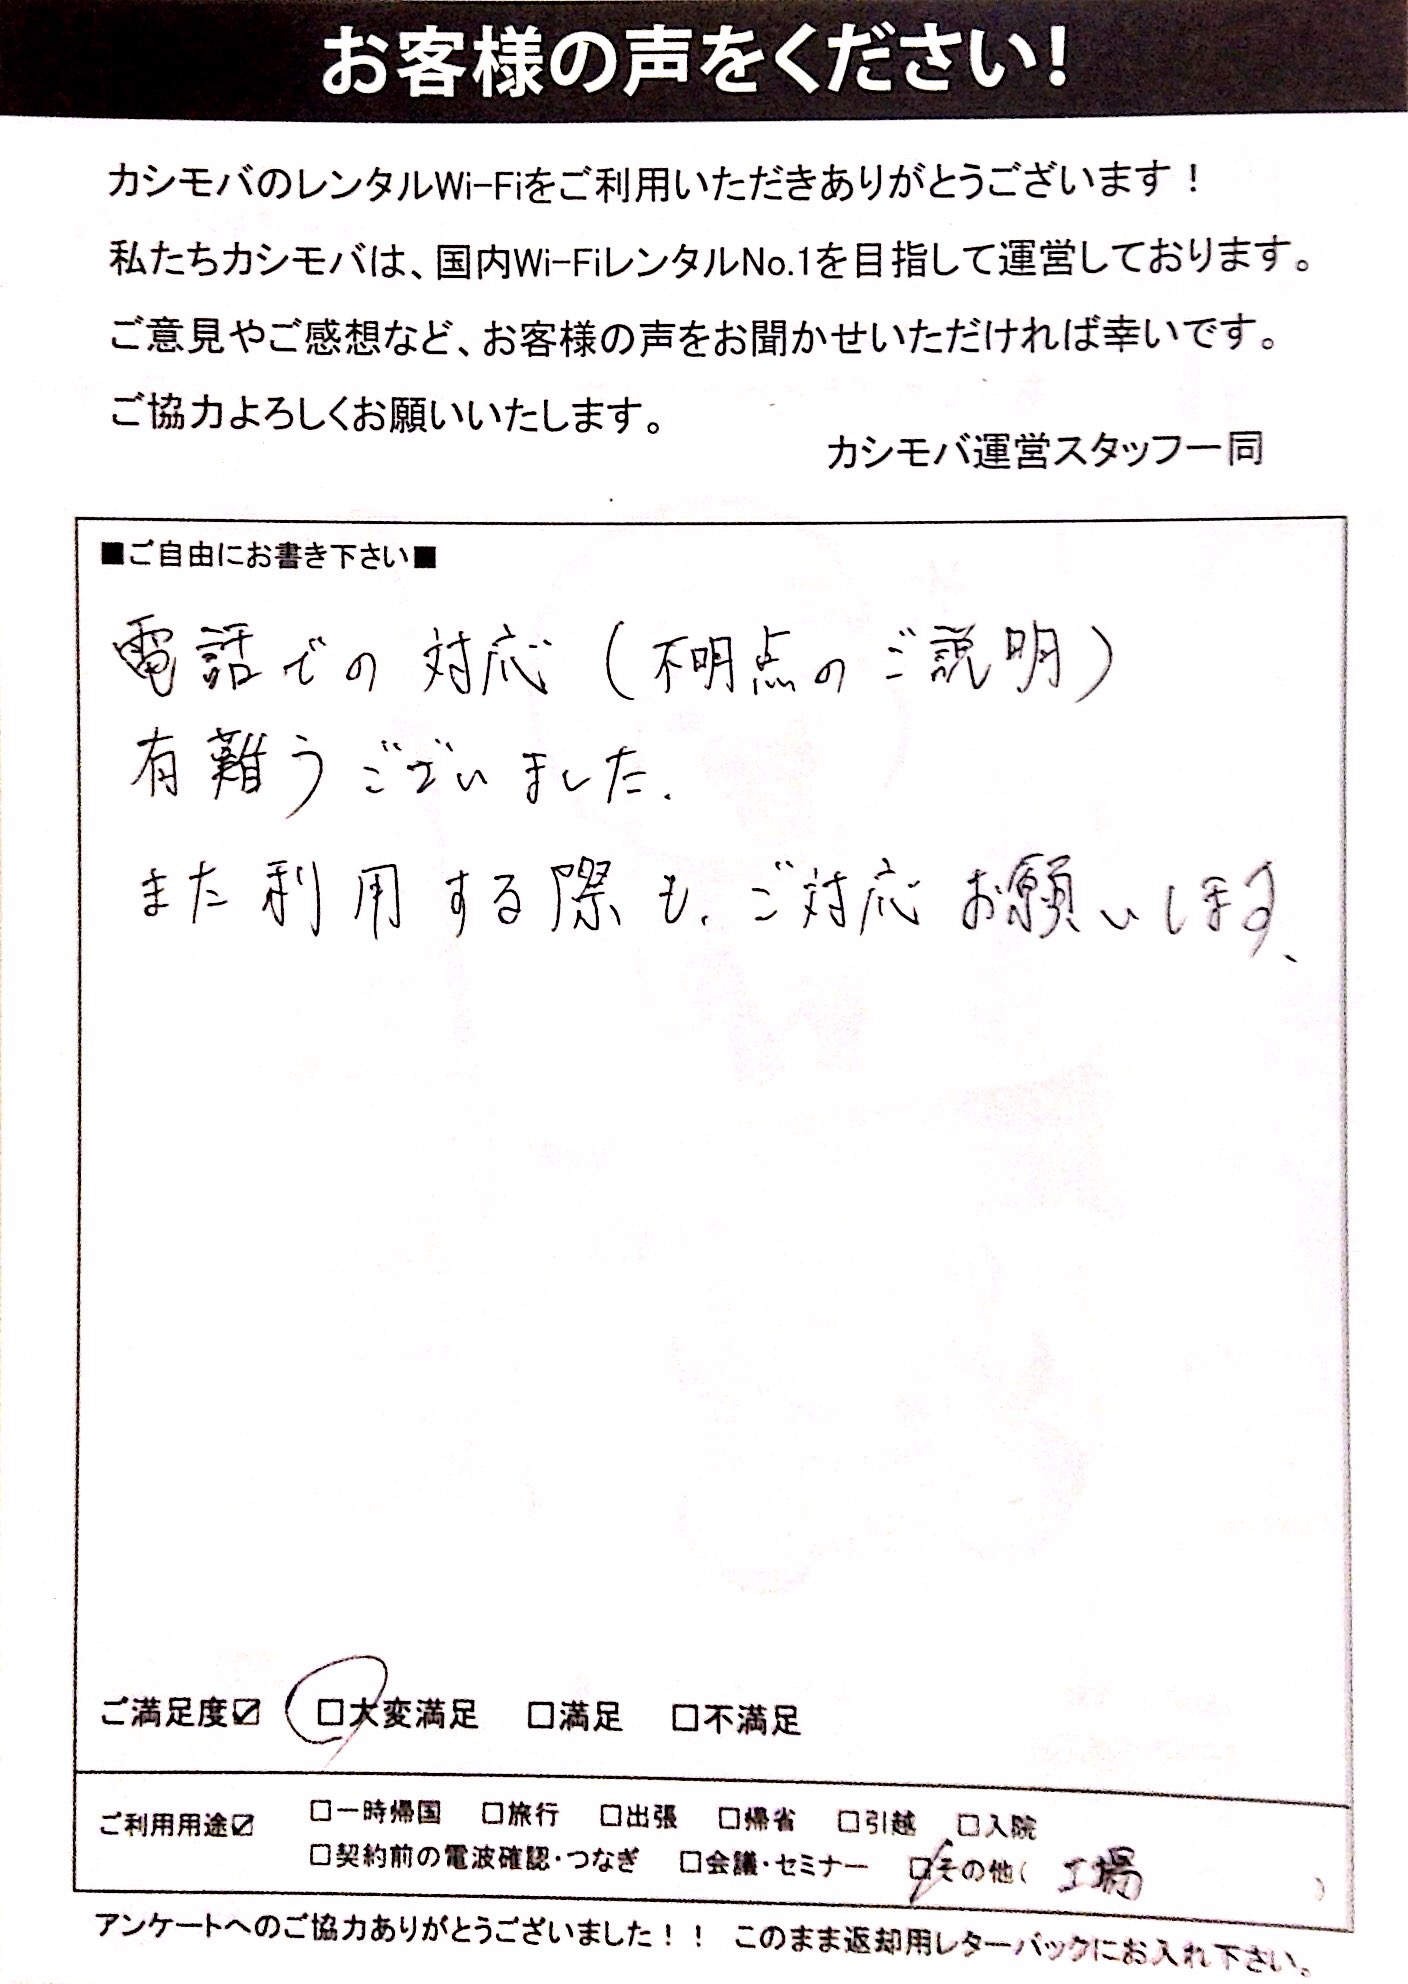 お客様の声をください!
カシモバのレンタルWi-Fiをご利用いただきありがとうございます！
私たちカシモバは、国内Wi-FiレンタルNo.1を目指して運営しております。
ご意見やご感想など、お客様の声をお聞かせいただければ幸いです。
ご協力よろしくお願いいたします。
カシモバ運営スタッフ一同
■ご自由にお書き下さい■
電話での対応（不明点のご説明）
有難うございました.
また利用する際も、ご対応お願いします、
ご満足度☑ □大変満足 □満足 □不満足
ご利用用途☑ □一時帰国 □旅行 □出張 □帰省 □引越 □入院
□契約前の電波確認・つなぎ □会議・セミナー ☑その他( 工場 )
アンケートへのご協力ありがとうございました！！ このまま返却用レターパックにお入れ下さい。